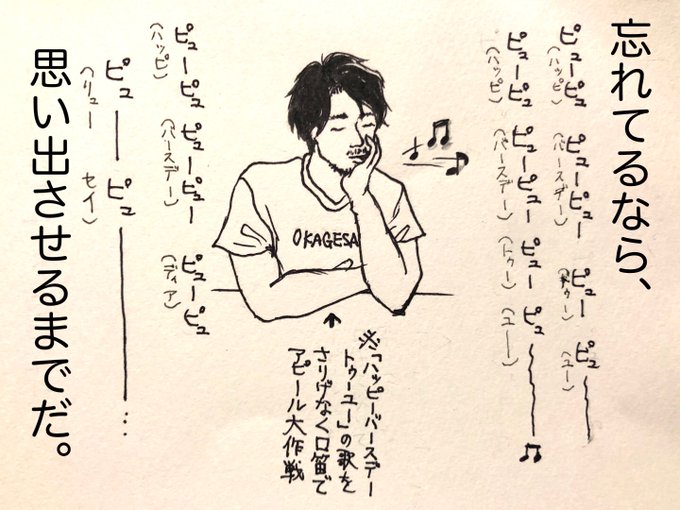 忘れてるなら、
ピューピュ ピューピュー ピュー ピュ
(ハッピ) (バースデー) (トゥー) (ユー)
ピューピュ ピューピュー ピュー ピュ
(ハッピ) (バースデー) (トゥー) (ユー)
OKAGESA
↑
※「ハッピーバースデー
トゥーユー」の歌を
さりげなく口笛で
アピール大作戦
ピューピュ ピューピュー ピューピュ
(ハッピ) (バースデー) (ディア)
ピュー ピュー…
(リュー セイ)
思い出させるまでだ。